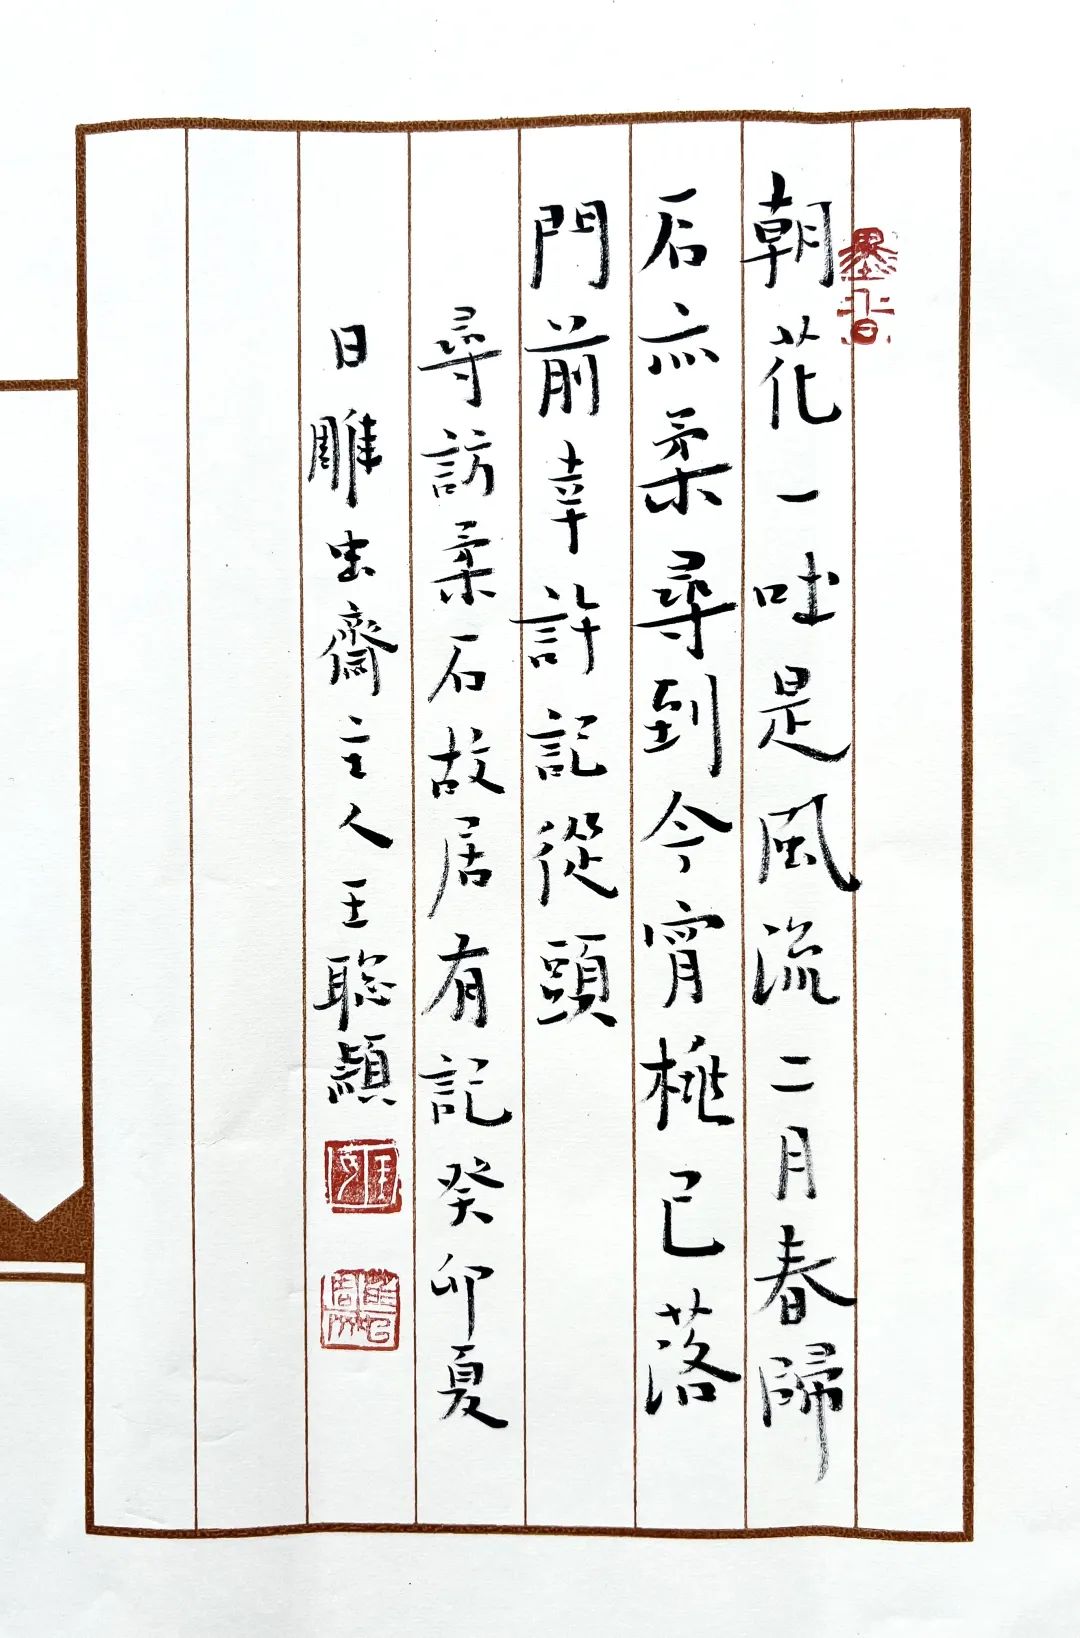 朝花一吐是風流二月春歸
石亦柔尋到今宵桃已落
門前幸許記從頭
尋訪柔石故居有記癸卯夏
日雕虫齋主人王聰穎